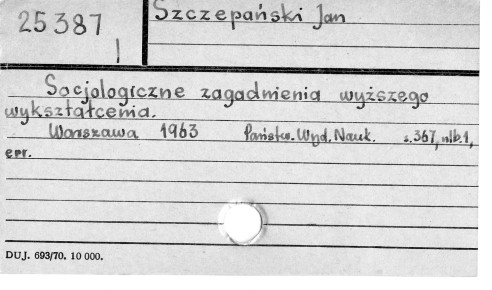 25387
Szczepański Jan
Socjologiczne zagadnienia wyższego
wykształcenia.
Warszawa 1963 Państw. Wyd. Nauk. s. 367, nlb. 1,
err.
DUJ. 693/70. 10 000.